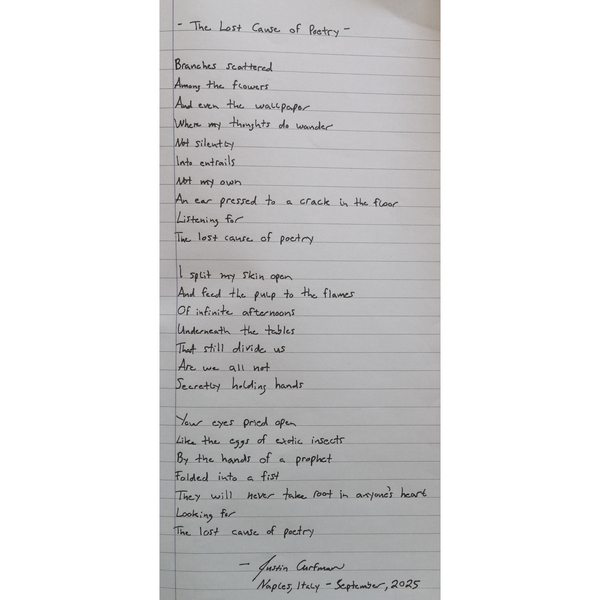 - The Lost Cause of Poetry -
Branches scattered
Among the flowers
And even the wallpaper
Where my thoughts do wander
Not silently
Into entrails
Not my own
An ear pressed to a crack in the floor
Listening for
The lost cause of poetry
I split my skin open
And feed the pulp to the flames
Of infinite afternoons
Underneath the tables
That still divide us
Are we all not
Secretly holding hands
Your eyes pried open
Like the eggs of exotic insects
By the hands of a prophet
Folded into a fist
They will never take root in anyone's heart
Looking for
The lost cause of poetry
- Justin Curfman
Naples, Italy - September, 2025